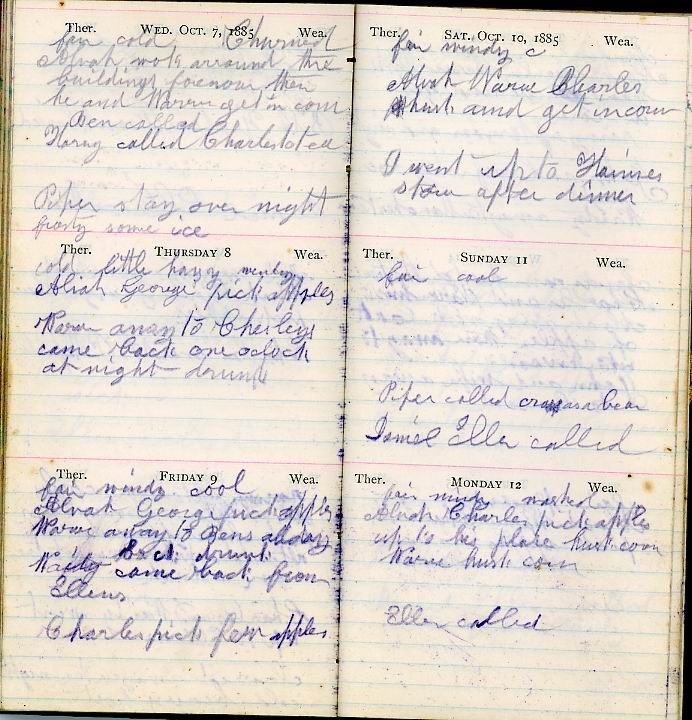 Ther. WED. OCT. 7, 1885 Wea.
fair cold Churned
Alvah work arround the
buildings forenoon then
he and Warne get in corn
Ben called
Harry called Charles
Piper stay over night
frosty some ice
Ther. THURSDAY 8 Wea.
cold little hazy
Alvah George pick apples
Warne away to Charleys
came back one oclock
at night drunk
Ther. FRIDAY 9 Wea.
fair windy cool
Alvah George pick apples
Warne away to Bens all day
back drunk
came back from
Ellens
Charles pick few apples
Ther. SAT. OCT. 10, 1885 Wea.
fair windy c
Alvah Warne Charles
husk and get in corn
I went up to
store after dinner
Ther. SUNDAY 11 Wea.
fair cool
Piper called cross as a bear
Daniel Eller called
Ther. MONDAY 12 Wea.
fair windy washed
Alvah Charles pick apples
up to his place husk corn
Warne husk corn
Eller called